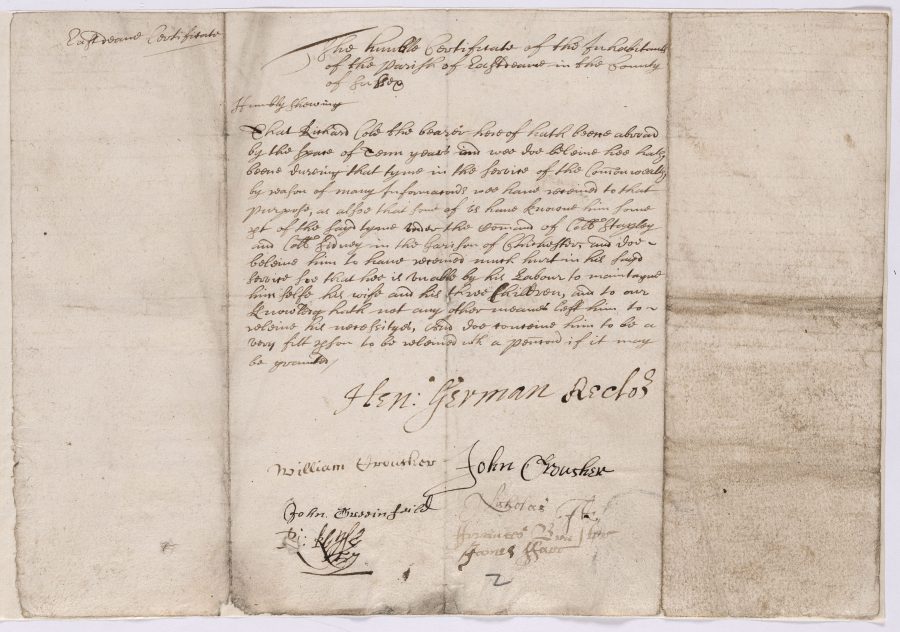 Eastdeane Certificate
The humble Certificate of the Inhabitants
of the Parish of Eastdeane in the County
of Sussex
Humbly shewing
That Richard Cole the bearer hereof hath beene abroad
by the space of Tenn yeares and wee doe beleive hee hath
beene dureing that tyme in the service of the Comonwealth
by reason of many Informacons wee have received to that
purpose, as alsoe that some of us have knowne him some
pt of the sayd tyme under the comand of Coll: Stapley
and Coll: Sidney in the Garison of Chichester, and doe
beleive him to have received much hurt in his sayd
service soe that hee is unable by his Labour to maintayne
him selfe his wife and his three Children, and to our
knowledg hath not any other meanes left him to
releive his necessityes, And doe conceive him to be a
very fitt pson to be releived wth a pencon if it may
be graunted
Hen: German Rector
William Crousher John Crousher
John Greenfeild
Ri:
Frances
James
2